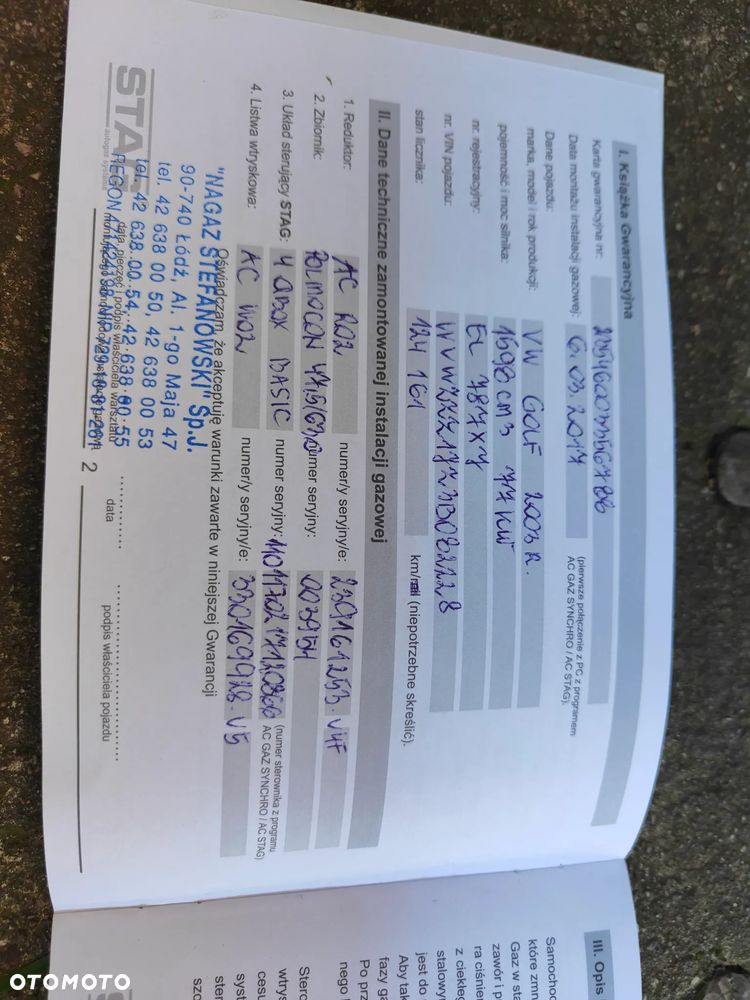 I. Książka Gwarancyjna
Karta gwarancyjna nr:
Data montażu instalacji gazowej: 6.03.2017 (pierwsze połączenie z PC z programem
AC GAZ SYNCHRO / AC STAG).
Dane pojazdu:
marka, model i rok produkcji: VW GOLF 2003 R.
pojemność i moc silnika: 1598 CM3 77 KW
nr. rejestracyjny: EL 787XY
nr. VIN pojazdu:
stan licznika: 124 161 km/mil (niepotrzebne skreślić).
II. Dane techniczne zamontowanej instalacji gazowej
1. Reduktor: AC R02 numer/y seryjny/e:
2. Zbiornik: numer seryjny: 003954
3. Układ sterujący STAG: 4 QBOX BASIC numer seryjny: (numer sterownika z programu
AC GAZ SYNCHRO / AC STAG)
4. Listwa wtryskowa: AC W02 numer/y seryjny/e:
Oświadczam, że akceptuję warunki zawarte w niniejszej Gwarancji
"NAGAZ STEFANOWSKI" Sp.J.
90-740 Łódź, Al. 1-go Maja 47
tel. 42 638 00 50, 42 638 00 53
tel. 42 638 00 54, 42 638 00 55
STAG
autogas systems
data, pieczęć i podpis właściciela warsztatu
data
podpis właściciela pojazdu
2
III. Opis
Samochod
które zmo
Gaz w sta
zawór i p
ra ciśnien
z ciekłeg
stalowym
jest do
Aby tak
fazy ga
Po prz
nego
Stero
wtrys
cesu
syst
ster
szc
OTOMOTO